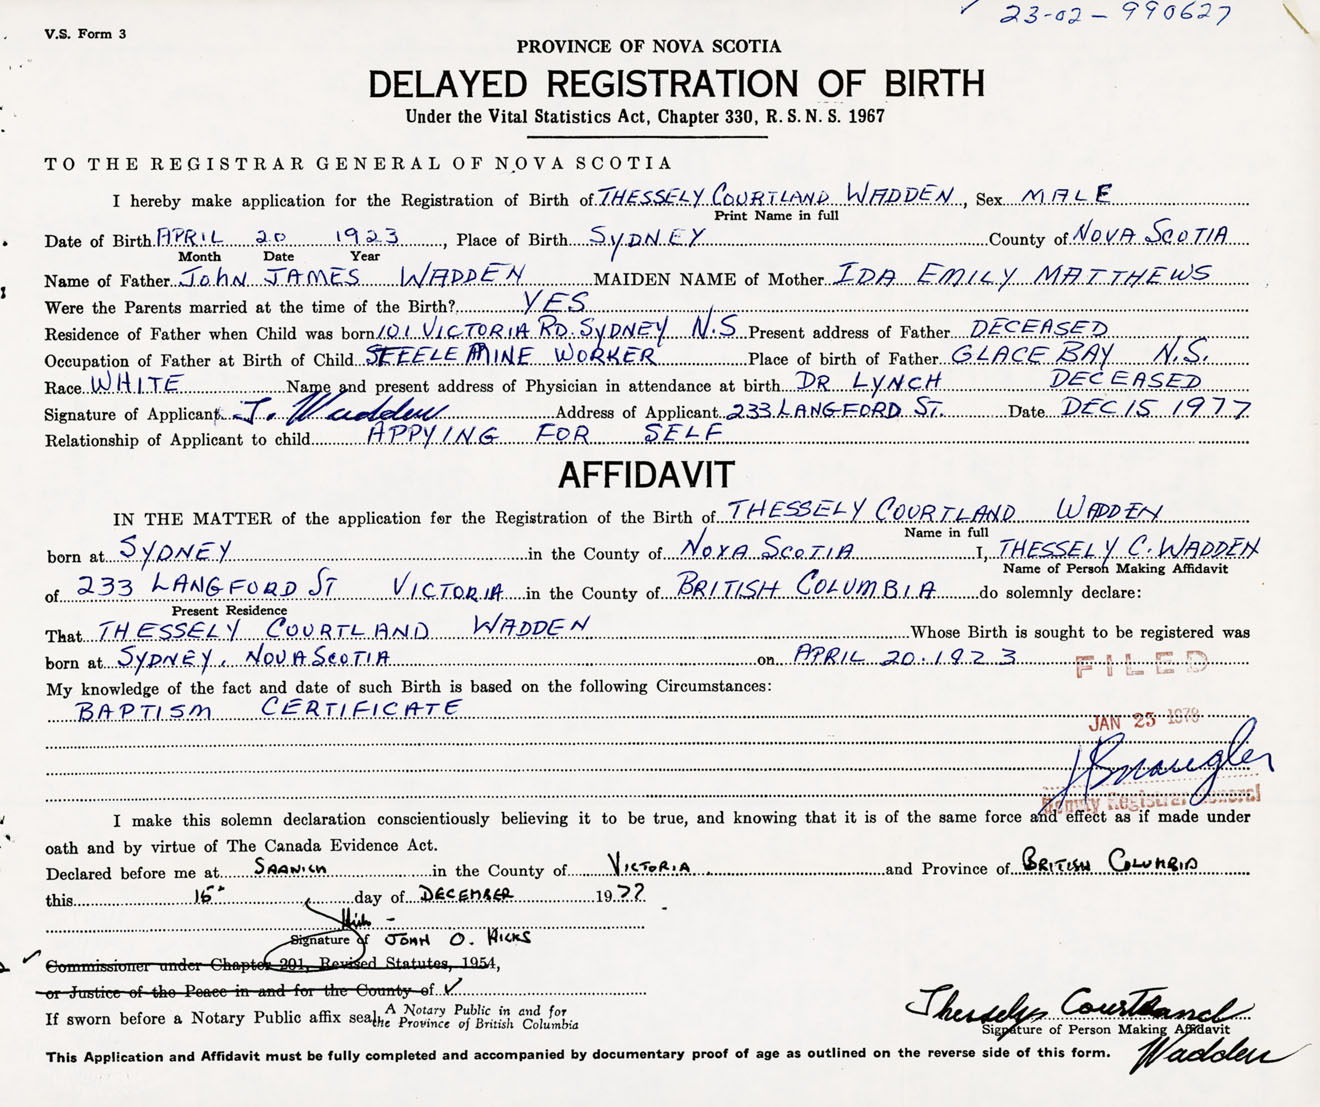 23-02-990627
V.S. Form 3
PROVINCE OF NOVA SCOTIA
DELAYED REGISTRATION OF BIRTH
Under the Vital Statistics Act, Chapter 330, R.S.N.S. 1967
TO THE REGISTRAR GENERAL OF NOVA SCOTIA
I hereby make application for the Registration of Birth of THESSELY COURTLAND WADDEN, Sex MALE
Print Name in full
Date of Birth APRIL 20 1923, Place of Birth SYDNEY County of NOVA SCOTIA
Month Date Year
Name of Father JOHN JAMES WADDEN MAIDEN NAME of Mother IDA EMILY MATTHEWS
Were the Parents married at the time of the Birth? YES
Residence of Father when Child was born 101 VICTORIA RD. SYDNEY N.S Present address of Father DECEASED
Occupation of Father at Birth of Child STEELE MINE WORKER Place of birth of Father GLACE BAY N.S.
Race WHITE Name and present address of Physician in attendance at birth DR LYNCH DECEASED
Signature of Applicant T. Wadden Address of Applicant 233 LANGFORD ST. Date DEC 15 1977
Relationship of Applicant to child APPYING FOR SELF
AFFIDAVIT
IN THE MATTER of the application for the Registration of the Birth of THESSELY COURTLAND WADDEN
Name in full
born at SYDNEY in the County of NOVA SCOTIA I, THESSELY C. WADDEN
Name of Person Making Affidavit
of 233 LANGFORD ST VICTORIA in the County of BRITISH COLUMBIA do solemnly declare:
Present Residence
That THESSELY COURTLAND WADDEN Whose Birth is sought to be registered was
born at SYDNEY, NOVA SCOTIA on APRIL 20. 1923
FILED
My knowledge of the fact and date of such Birth is based on the following Circumstances:
BAPTISM CERTIFICATE
JAN 23 1978
Deputy Registrar General
I make this solemn declaration conscientiously believing it to be true, and knowing that it is of the same force and effect as if made under
oath and by virtue of The Canada Evidence Act.
Declared before me at SAANICH in the County of VICTORIA and Province of BRITISH COLUMBIA
this 15" day of DECEMBER 1977
Signature of JOHN O. HICKS
Commissioner under Chapter 201, Revised Statutes, 1954,
or Justice of the Peace in and for the County of
If sworn before a Notary Public affix seal. A Notary Public in and for
the Province of British Columbia
Thessely Courtland
Signature of Person Making Affidavit
Wadden
This Application and Affidavit must be fully completed and accompanied by documentary proof of age as outlined on the reverse side of this form.